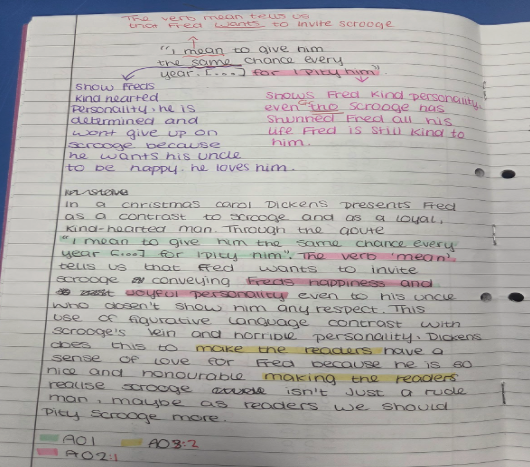 The verb mean tells us
that Fred wants to invite scrooge
"I mean to give him
the same chance every
year. [...] for I pity him"
Show Freds
kind hearted
Personality. he is
determined and
wont give up on
scrooge because
he wants his uncle
to be happy. he loves him.
Shows Fred kind personality.
even tho scrooge has
shunned Fred all his
life Fred is still kind to
him.
In a christmas carol Dickens presents Fred
as a contrast to scrooge and as a loyal,
kind-hearted man. Through the qoute
"I mean to give him the same chance every
year [...] for I pity him". The verb 'mean'
tells us that Fred wants to invite
scrooge conveying Freds happiness and
Joyful personality even to his uncle
who dosen't show him any respect. This
use of figurative language contrast with
scrooge's vein and horrible personality. Dickens
does this to make the readers have a
sense of love for Fred because he is so
nice and honourable making the readers
realise scrooge isn't Just a rude
man, maybe as readers we should
Pity scrooge more.
AO1 AO3:2
AO2:1